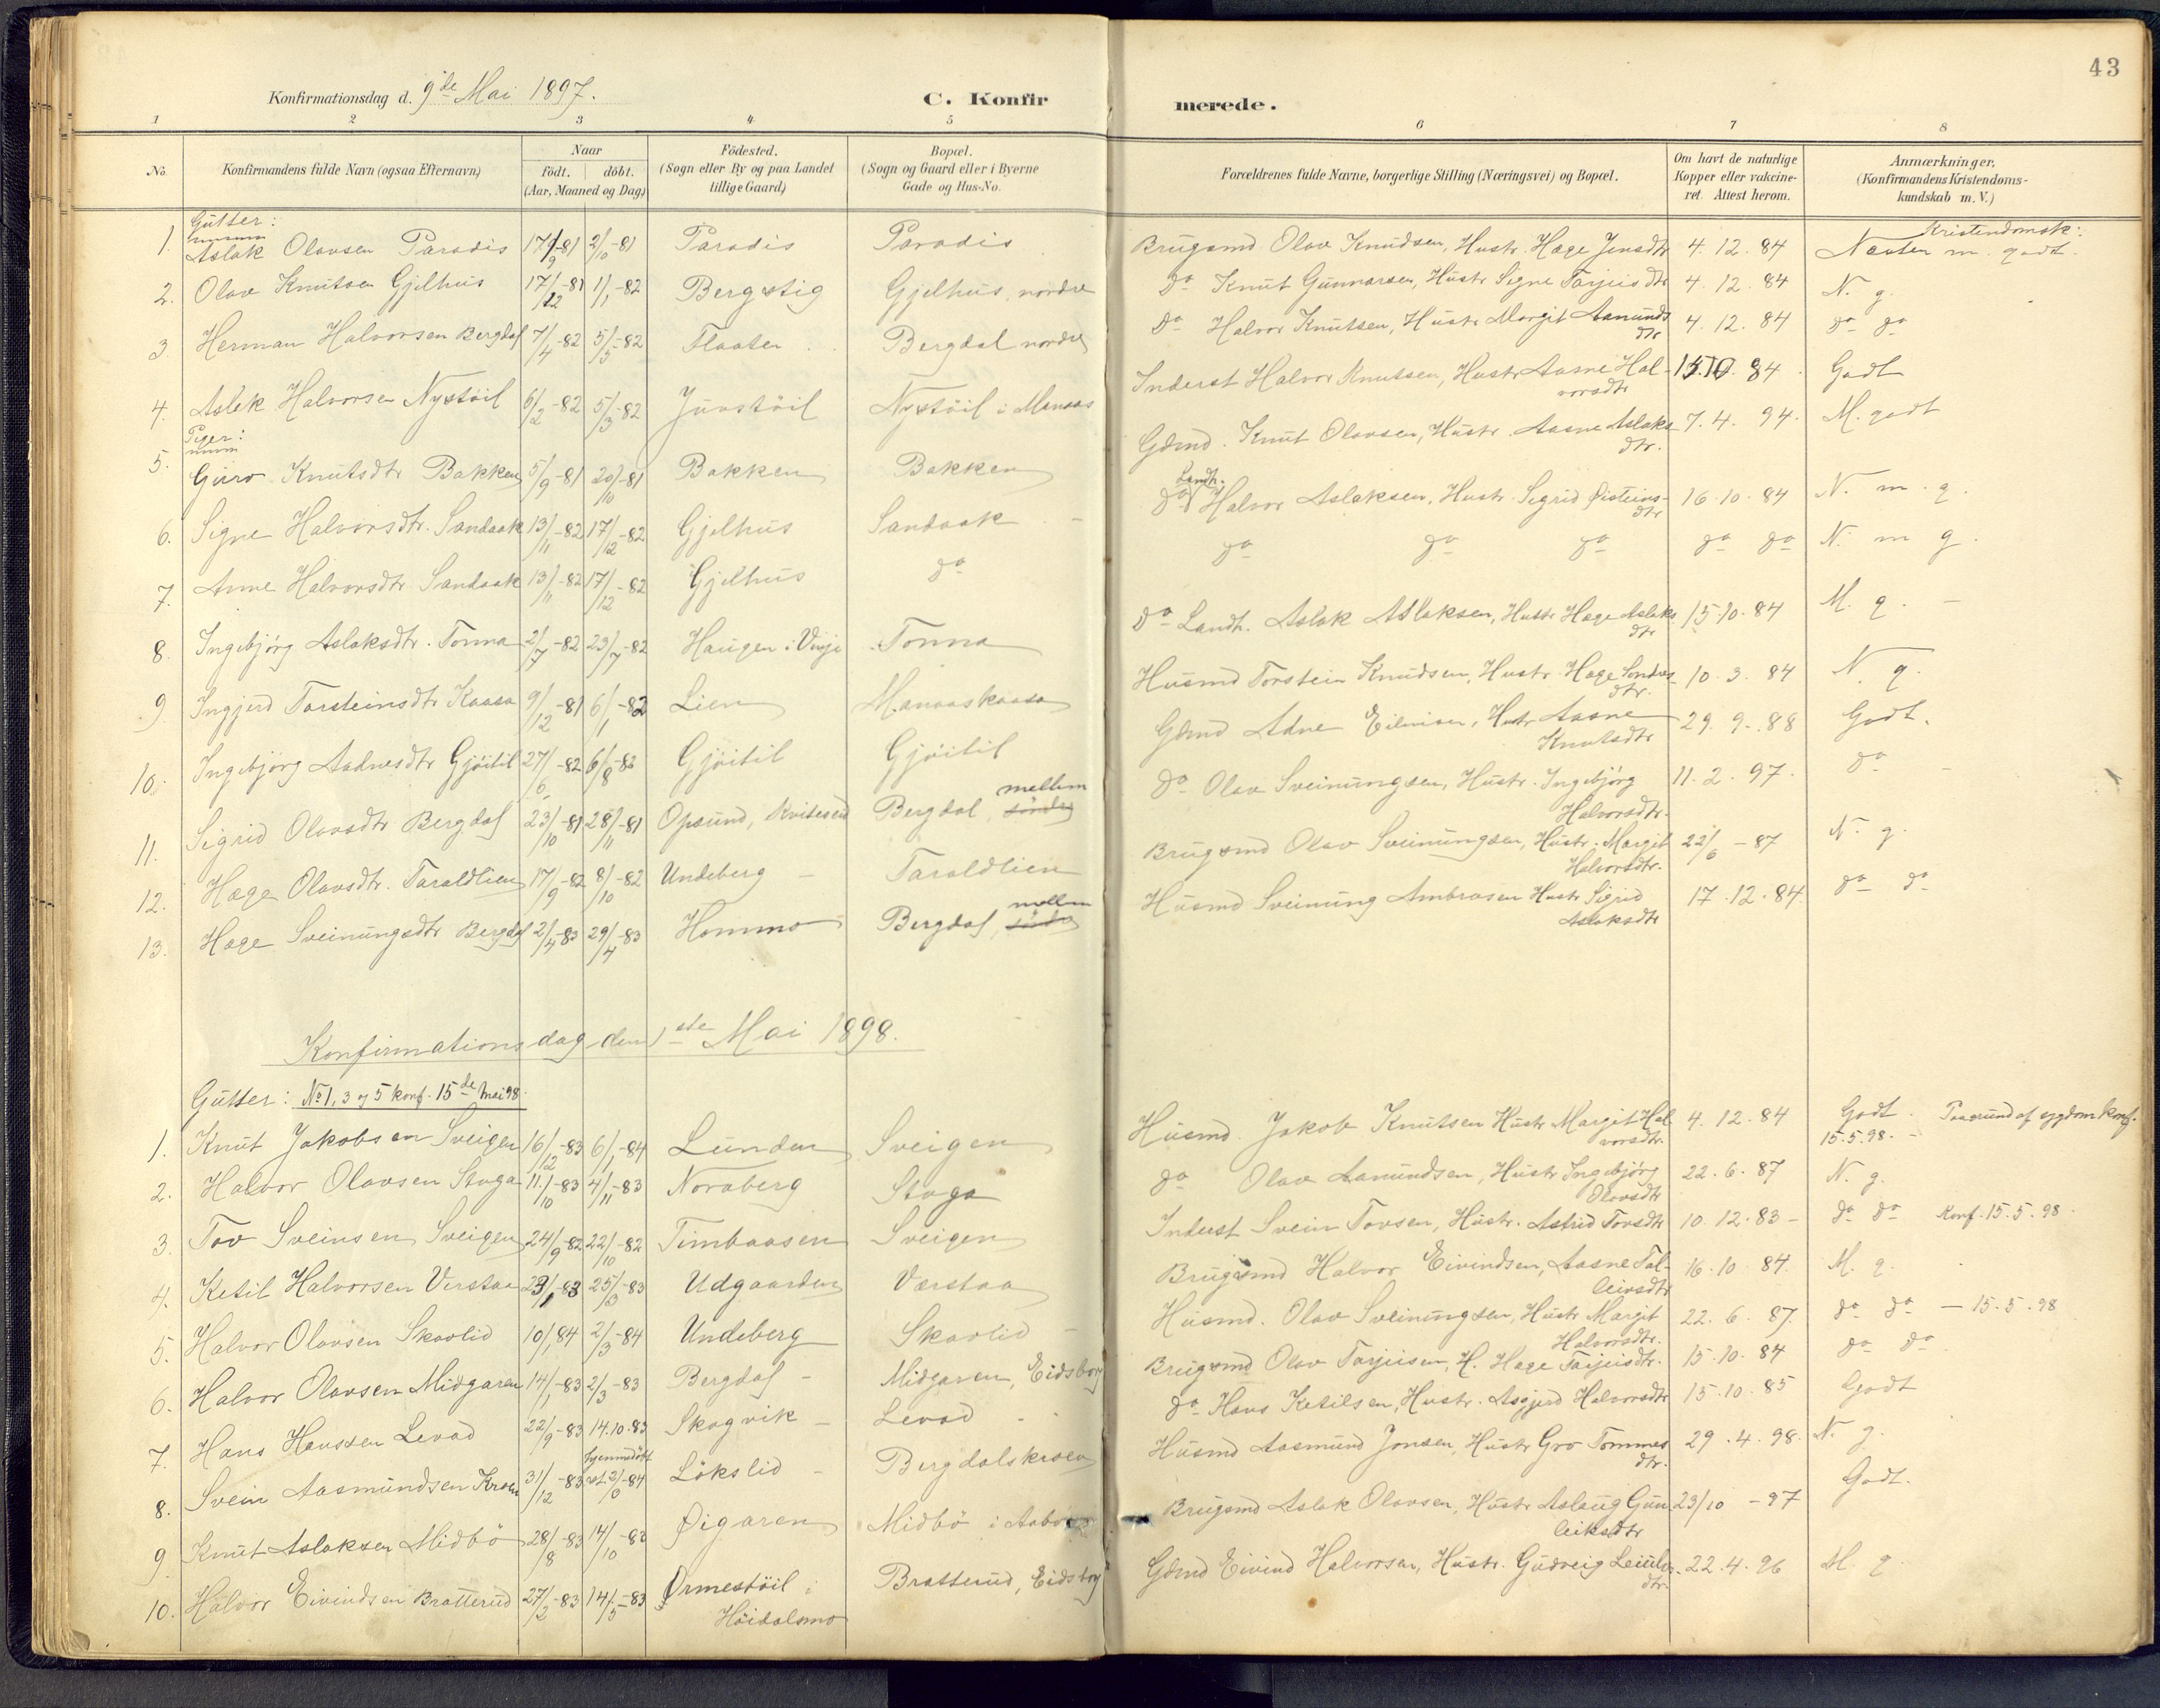 43
Konfirmationsdag d. 9de Mai 1897.
C. Konfirmerede.
1 2 3 4 5 6 7 8
No.
Konfirmandens fulde Navn (ogsaa Efternavn)
Naar født. døbt. (Aar, Maaned og Dag)
Födested. (Sogn eller By og paa Landet tillige Gaard)
Bopæl. (Sogn og Gaard eller i Byerne Gade og Hus-No.
Forældrenes fulde Navne, borgerlige Stilling (Næringsvei) og Bopæl.
Om havt de naturlige Kopper eller vakcineret. Attest herom.
Anmærkninger, (Konfirmandens Kristendomskundskab m. V.)
Gutter:
Kristendomsk:
1. Aslak Olavsen Paradis 17/9-81 2/10-81 Paradis Paradis Brugsmd Olav Knudsen, Hustr. Hæge Jensdtr 4.12.84 Næsten m. godt.
2. Olav Knutsen Gjelhus 17/12-81 1/1-82 Bergstig Gjelhus, nordre Do Knut Gunnarsen, Hustr Signe Tarjeisdtr 4.12.84 N. g.
3. Herman Halvorsen Bergdal 7/4-82 5/5-82 Flaaten Bergdal nordre Do Halvor Knutsen, Hustr Margit Aamundsdtr 4.12.84 do do
4. Aslak Halvorsen Nystöil 6/2-82 5/3-82 Juvstöil Nystöil i Manaas Inderst Halvor Knutsen, Hustr Aasne Halvorsdtr 15.10.84 Godt
Piger:
5. Guro Knutsdtr Bakken 5/9-81 20/10-81 Bakken Bakken Gdmd. Knut Olavsen, Hustr. Aasne Aslaksdtr. 7.4.94. M. godt
6. Signe Halvorsdtr. Sandaak 13/11-82 17/12-82 Gjelhus Sandaak do Landh. Halvor Aslaksen, Hustr. Sigrid Øisteinsdtr 16.10.84 N. m. g.
7. Anne Halvorsdtr Sandaak 13/11-82 17/12-82 Gjelhus do do do do do do N. m g.
8. Ingebjörg Aslaksdtr. Tonna 2/7-82 23/7-82 Haugen i Vinje Tonna Do Landh. Aslak Aslaksen, Hustr Hæge Aslaksdtr 15.10.84 M. g.
9. Ingjerd Torsteinsdtr Kaasa 9/12-81 6/1-82 Lien Manaaskaasa Husmd Torstein Knudsen, Hustr. Hæge Sondresdtr. 10.3.84 N. g.
10. Ingebjörg Aadnesdtr Gjöitil 27/6-82 6/8-82 Gjöitil Gjöitil Gdmd Adne Eilivsen, Hustr Aasne Knutsdtr 29.9.88 Godt.
11. Sigrid Olavsdtr Bergdal 23/10-81 28/11-81 Opsund, Kviteseid Bergdal, söndre mellem Do Olav Sveinungsen, Hustr. Ingebjörg Halvorsdtr. 11.2.97. do
12. Hæge Olavsdtr. Taraldlien 17/9-82 8/10-82 Undeberg Taraldlien Brugsmd Olav Sveinungsen, Hustr. Margit Halvorsdtr. 22/6-87 N. g.
13. Hæge Sveinungsdtr Bergdal 2/4-83 29/4-83 Hommo Bergdal, söndre mellem Husmd Sveinung Ambrosen Hustr Sigrid Aslaksdtr 17.12.84. do do
Konfirmationsdag den 1ste Mai 1898.
Gutter: No 1, 3 og 5 konf. 15de Mai 98.
1. Knut Jakobsen Sveigen 16/12-83 6/1-84 Lunden Sveigen Husmd. Jakob Knutsen Hustr Margit Halvorsdtr. 4.12.84 Godt. Paagrund af sygdom konf. 15.5.98.
2. Halvor Olavsen Stoga 11/10-83 4/11-83 Noraberg Stoga do Olav Aamundsen, Hustr Ingebjörg Olavsdtr 22.6.87 N. g.
3. Tov Sveinsen Sveigen 24/9-82 22/10-82 Timbaasen Sveigen Inderst Svein Tovsen, Hustr. Astrid Tovsdtr 10.12.83 do do Konf. 15.5.98.
4. Ketil Halvorsen Verstaa 23/1-83 25/3-83 Udgaarden Værstaa Brugsmd Halvor Eivindsen, Aasne Talleivsdtr 16.10.84. M. g.
5. Halvor Olavsen Skavlid 10/1 84 2/3-84 Undeberg Skavlid Husmd. Olav Sveinungsen, Hustr Margit Halvorsdtr. 22.6.87. do do — 15.5.98
6. Halvor Olavsen Midgaren 14/1-83 2/3-83 Bergdal Midgaren, Eidsborg Brugsmd Olav Tarjeisen, H. Hæge Tarjeisdtr. 15.10.84 do do
7. Hans Hanssen Levad 22/9-83 14.10.83 Skogvik Levad do Hans Ketilsen, Hustr. Asgjerd Halvorsdtr 15.10.85 Godt
8. Svein Aasmundsen Kroen 31/12-83 hjemmedöbt 2/3-84 Lökslid Bergdalskroen Husmd Aasmund Jonsen, Hustr Gro Tommesdtr. 29.4.98. N. g.
9. Knut Aslaksen Midbö 28/8-83 14/10-83 Øigaren Midbö i Brugsmd Aslak Olavsen, Hustr Aslaug Gunleiksdtr 23/10-97 Godt.
10. Halvor Eivindsen Bratterud 27/2-83 14/5-83 Ormestöil i Höidalsmo Bratterud, Eidsborg Gdmd Eivind Halvorsen, Hustr. Gudveig 22.4.96 M. g.